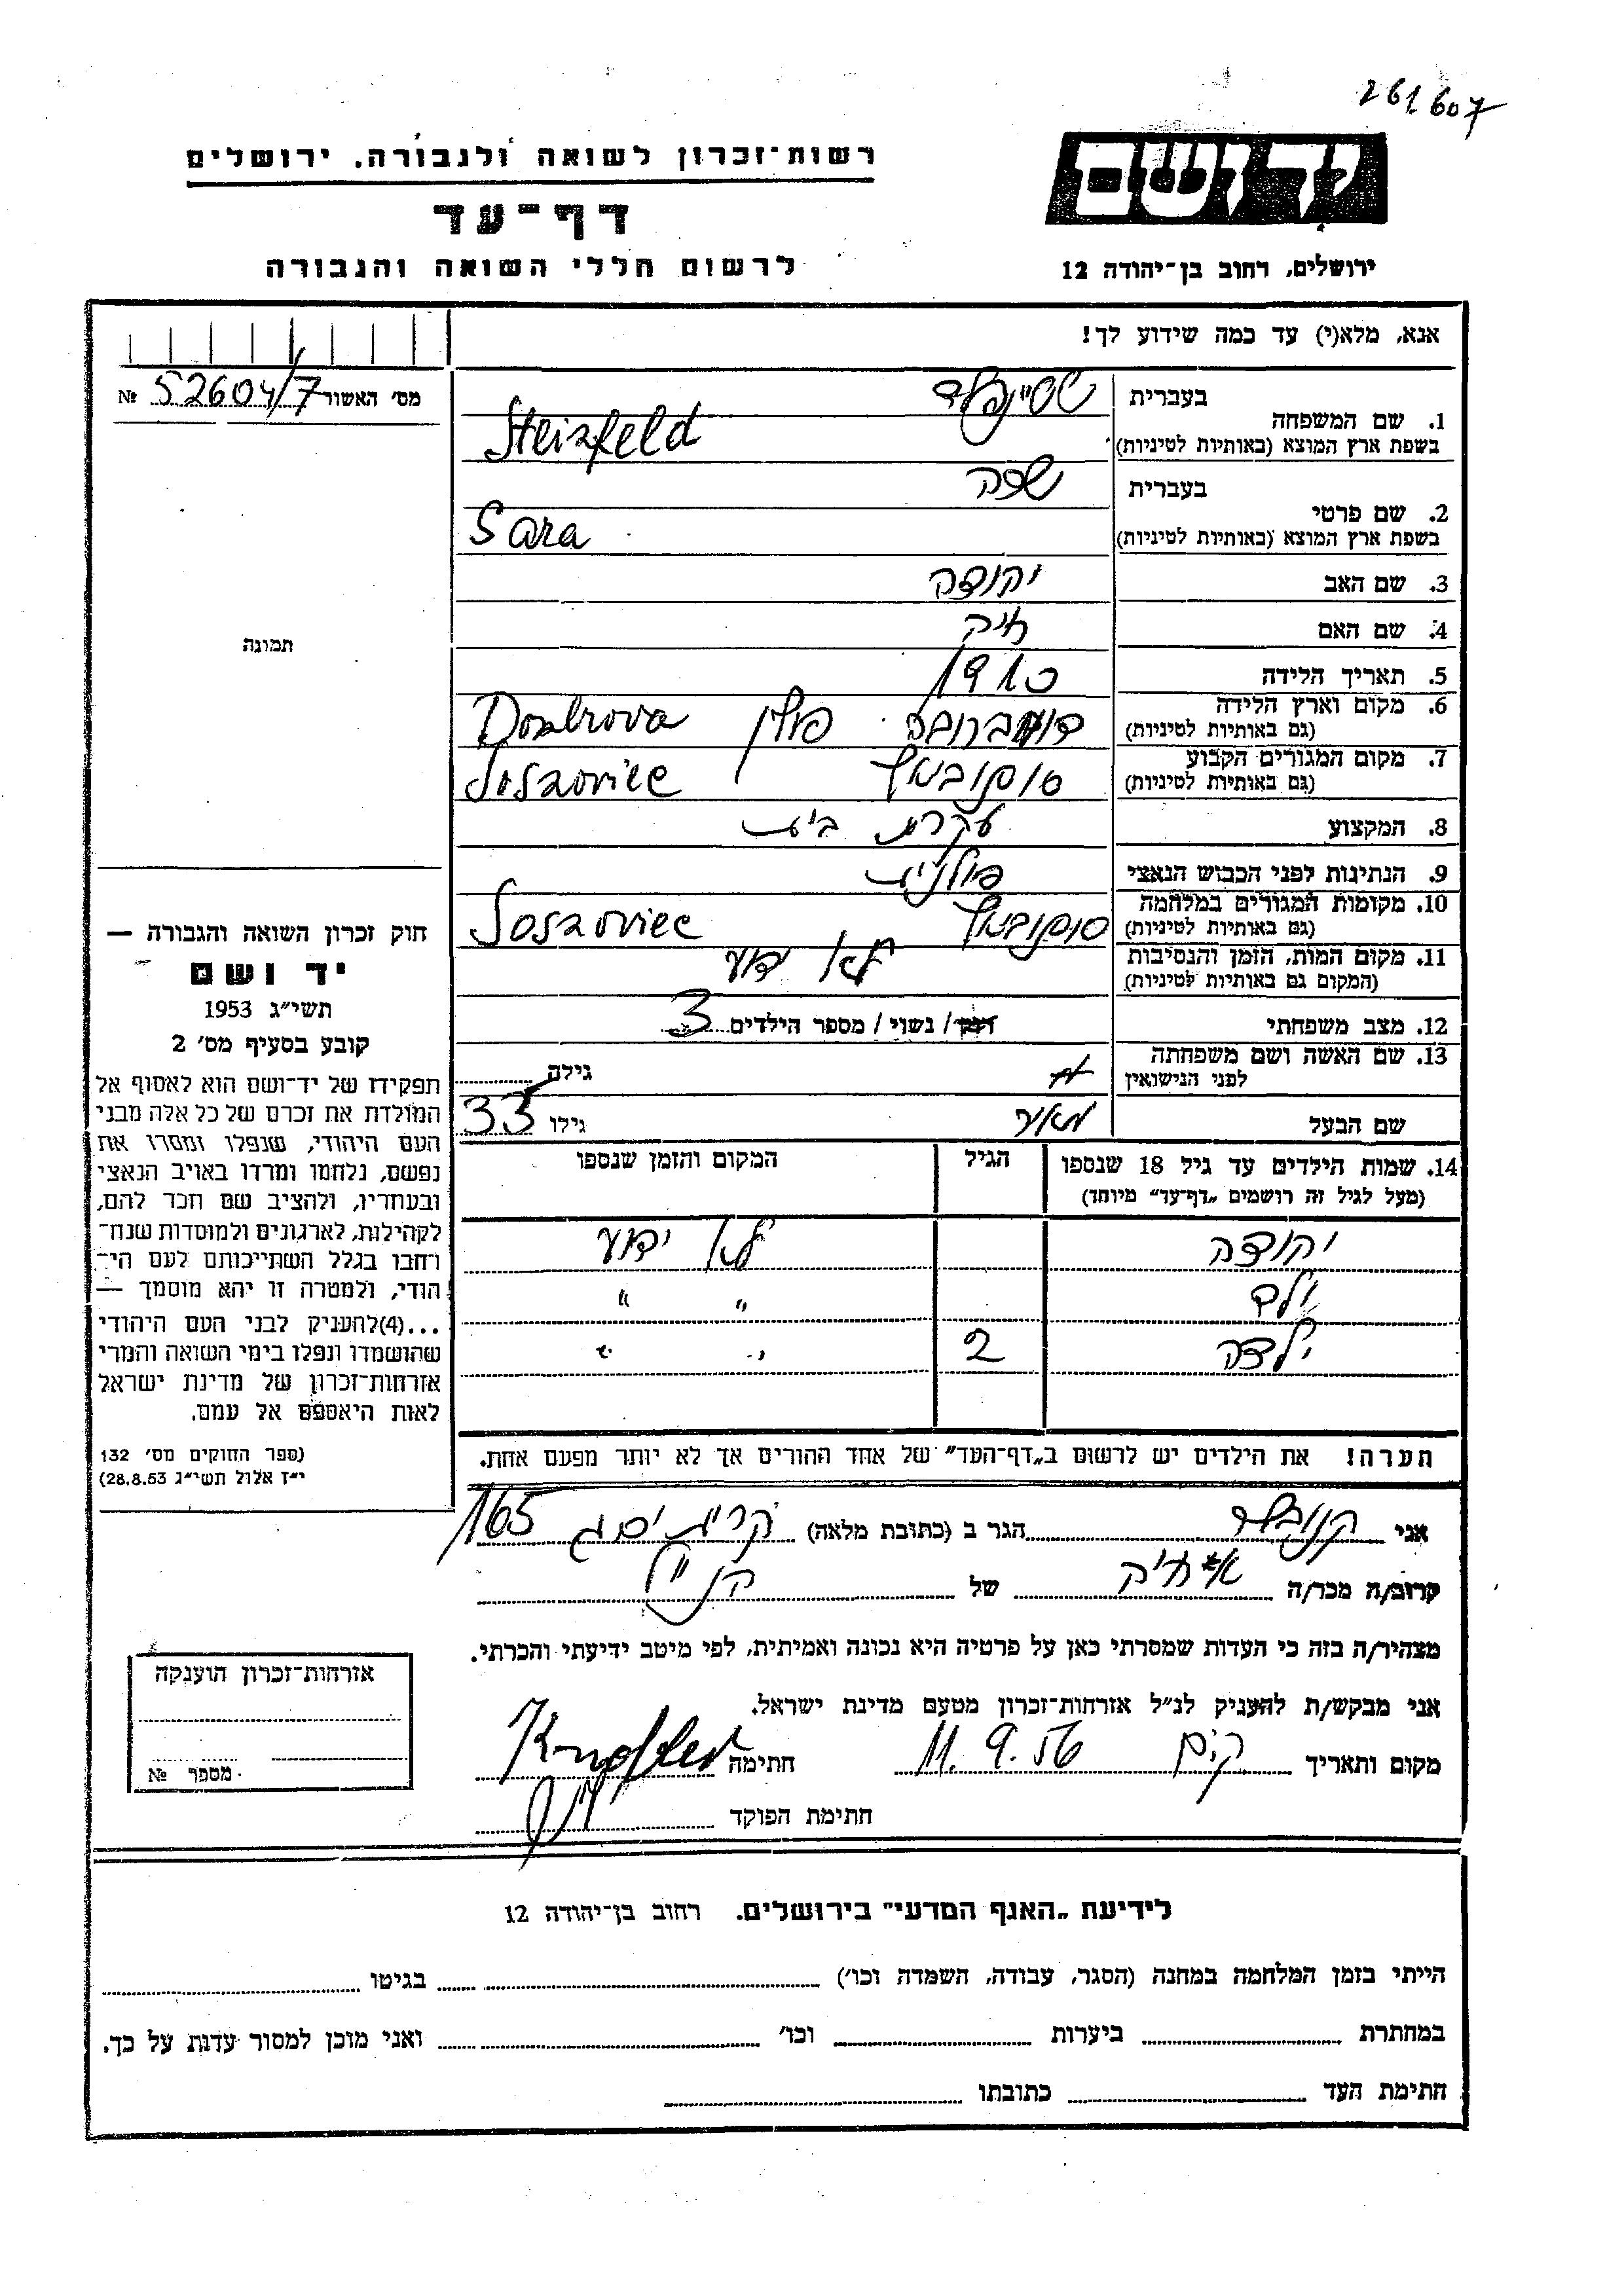 261607
רשות־זכרון לשואה ולגבורה. ירושלים
יד ושם
דף־עד
לרשום חללי השואה והגבורה
ירושלים, רחוב בן־יהודה 12
אנא, מלא(י) עד כמה שידוע לך!
מס׳ האשור 52604/7 №
1. שם המשפחה בעברית שטיינפלד
בשפת ארץ המוצא (באותיות לטיניות) Steinfeld
2. שם פרטי בעברית שרה
בשפת ארץ המוצא (באותיות לטיניות) Sara
3. שם האב יהודה
4. שם האם חיה
5. תאריך הלידה 1910
6. מקום וארץ הלידה דומברובה פולין Dombrova
(גם באותיות לטיניות)
7. מקום המגורים הקבוע סוסנוביץ Sosnoviec
(גם באותיות לטיניות)
8. המקצוע עקרת בית
9. הנתינות לפני הכבוש הנאצי פולנית
10. מקומות המגורים במלחמה סוסנוביץ Sosnoviec
(גם באותיות לטיניות)
11. מקום המות, הזמן והנסיבות לא ידוע
(המקום גם באותיות לטיניות)
12. מצב משפחתי רווק/ נשוי/ מספר הילדים 3
13. שם האשה ושם משפחתה גילה
לפני הנישואין
שם הבעל מאיר גילו 33
14. שמות הילדים עד גיל 18 שנספו הגיל המקום והזמן שנספו
(מעל לגיל זה רושמים „דף־עד” מיוחד)
יהודה לא ידוע
ילד " "
ילדה 2 " "
הערה! את הילדים יש לרשום ב„דף־העד” של אחד ההורים אך לא יותר מפעם אחת.
תמונה
חוק זכרון השואה והגבורה —
יד ושם
תשי״ג 1953
קובע בסעיף מס׳ 2
תפקידו של יד־ושם הוא לאסוף אל
המולדת את זכרם של כל אלה מבני
העם היהודי, שנפלו ומסרו את
נפשם, נלחמו ומרדו באויב הנאצי
ובעוזריו, ולהציב שם וזכר להם,
לקהילות, לארגונים ולמוסדות שנח־
רבו בגלל השתייכותם לעם הי־
הודי, ולמטרה זו יהא מוסמך —
...(4)להעניק לבני העם היהודי
שהושמדו ונפלו בימי השואה והמרי
אזרחות־זכרון של מדינת ישראל
לאות היאספם אל עמם.
(ספר החוקים מס׳ 132
י״ז אלול תשי״ג 28.8.53)
אני הגר ב (כתובת מלאה) קרית ים ג 165
קרוב/ה מכר/ה של
מצהיר/ה בזה כי העדות שמסרתי כאן על פרטיה היא נכונה ואמיתית, לפי מיטב ידיעתי והכרתי.
אני מבקש/ת להעניק לנ״ל אזרחות־זכרון מטעם מדינת ישראל.
מקום ותאריך 11.9.56 חתימה
חתימת הפוקד
אזרחות־זכרון הוענקה
מספר №
לידיעת „האגף המדעי” בירושלים. רחוב בן־יהודה 12
הייתי בזמן המלחמה במחנה (הסגר, עבודה, השמדה וכו׳) בגיטו
במחתרת ביערות וכו׳ ואני מוכן למסור עדות על כך.
חתימת העד כתובתו